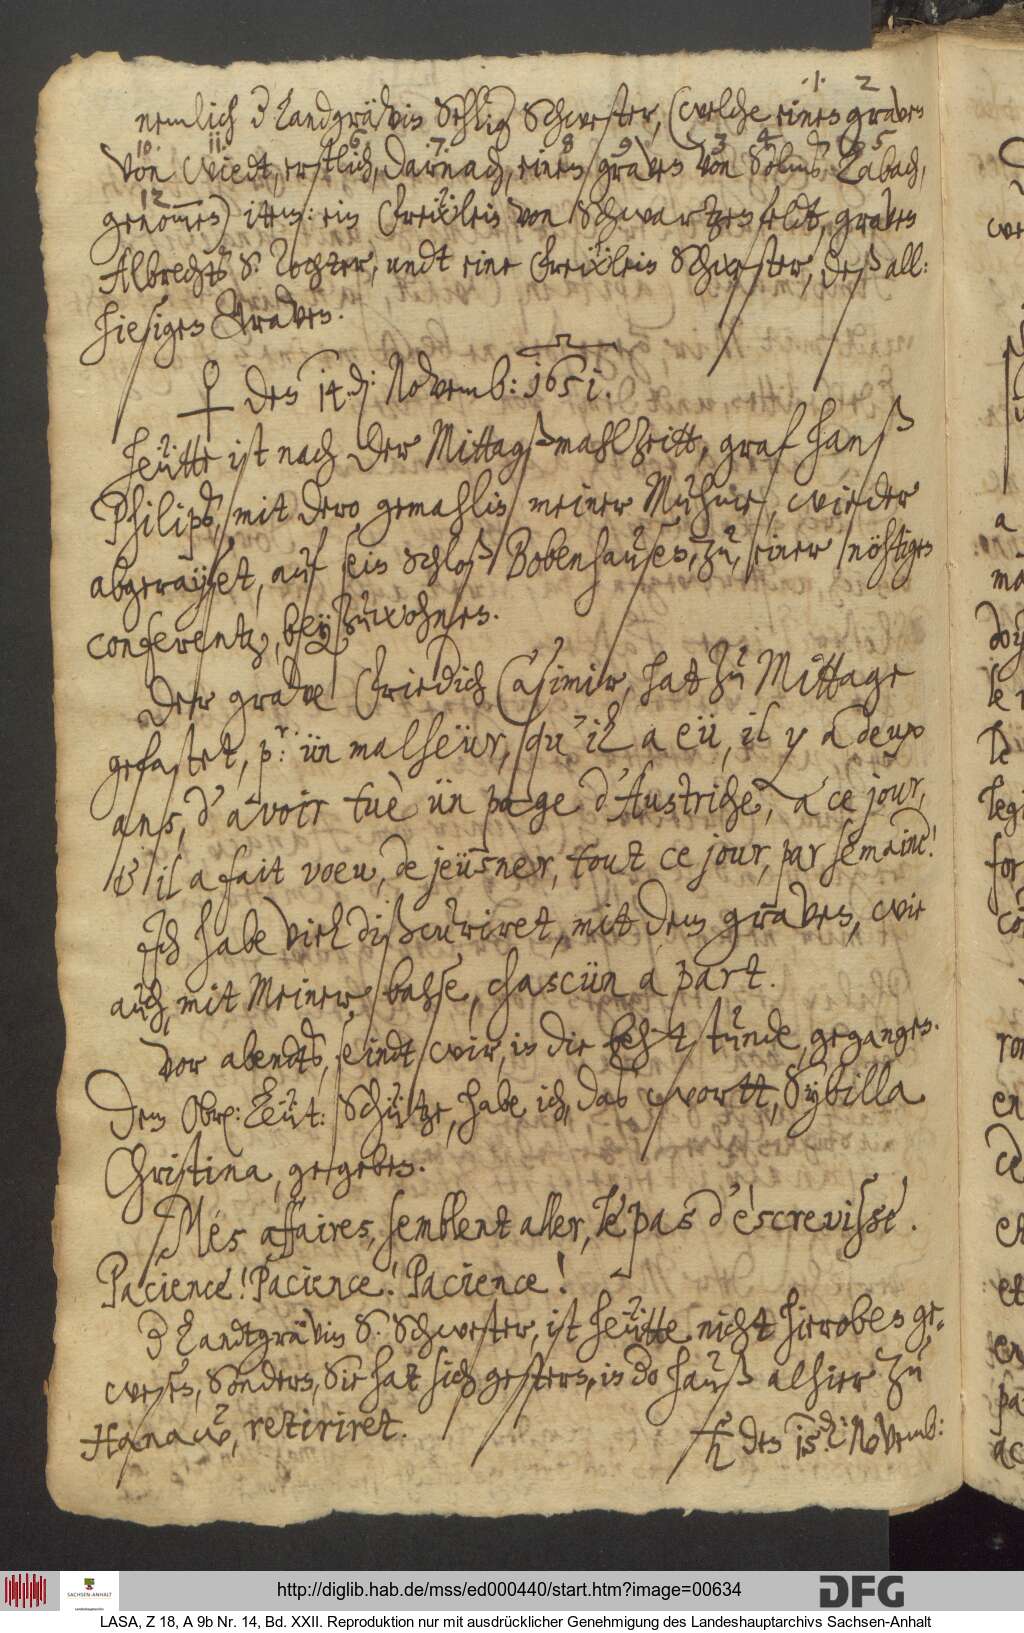 .1. 2
nemlich d Landgrävin Sehlig Schwester, (welche eines graven
10. 11. 6. 7. 8. 9. 3. 4. 5.
von Wiedt, erstlich, darnach, eines graven von Solms, Labach,
12
genommen) item: ein Freẅlein von Schwartzenfeldt, graven
Albrechts S. Tochter, undt eine Freẅlein Schwester, deß all:
hiesigen Graven.
♀ den 14.d: Novemb: 1651.
Heütte ist nach der Mittagßmahlzeitt, graf Hanß
Philips, mit dero gemahlin meiner Muhme, wieder
abgerayset, auf sein Schloß Bobenhausen, zu, seiner nöhtigen
conferentz, beyzuwohnen.
Der grave Friedich Casimir, hat zu Mittage
gefastet, pr: ün malheür, qu'il a eü, il y a deux
ans, d'avoir tuè ün page d'Austriche, a ce jour,
& il a fait voeu, de jeüsner, tout ce jour, par semaine!
Ich habe viel dißcuriret, mit dem graven, wie
auch, mit Meiner, bahse, chascün a part.
Vor abendts, seindt wir, in die behtstunde, gegangen.
Dem Obr: Leüt: Schütze, habe ich, das wortt, Sybilla
Christina, gegeben.
Més affaires, semblent aller, le pas d'éscrevisse.
Pacience! Pacience! Pacience!
d Landtgrävin S. Schwester, ist heütte nicht hieroben ge-
wesen, sondern, Sie hat sich gestern, in do hauß alhier zu
Hanaw, retiriret.
♄ den 15.d: Novemb:
http://diglib.hab.de/mss/ed000440/start.htm?image=00634
DFG
SACHSEN-ANHALT
LASA, Z 18, A 9b Nr. 14, Bd. XXII. Reproduktion nur mit ausdrücklicher Genehmigung des Landeshauptarchivs Sachsen-Anhalt